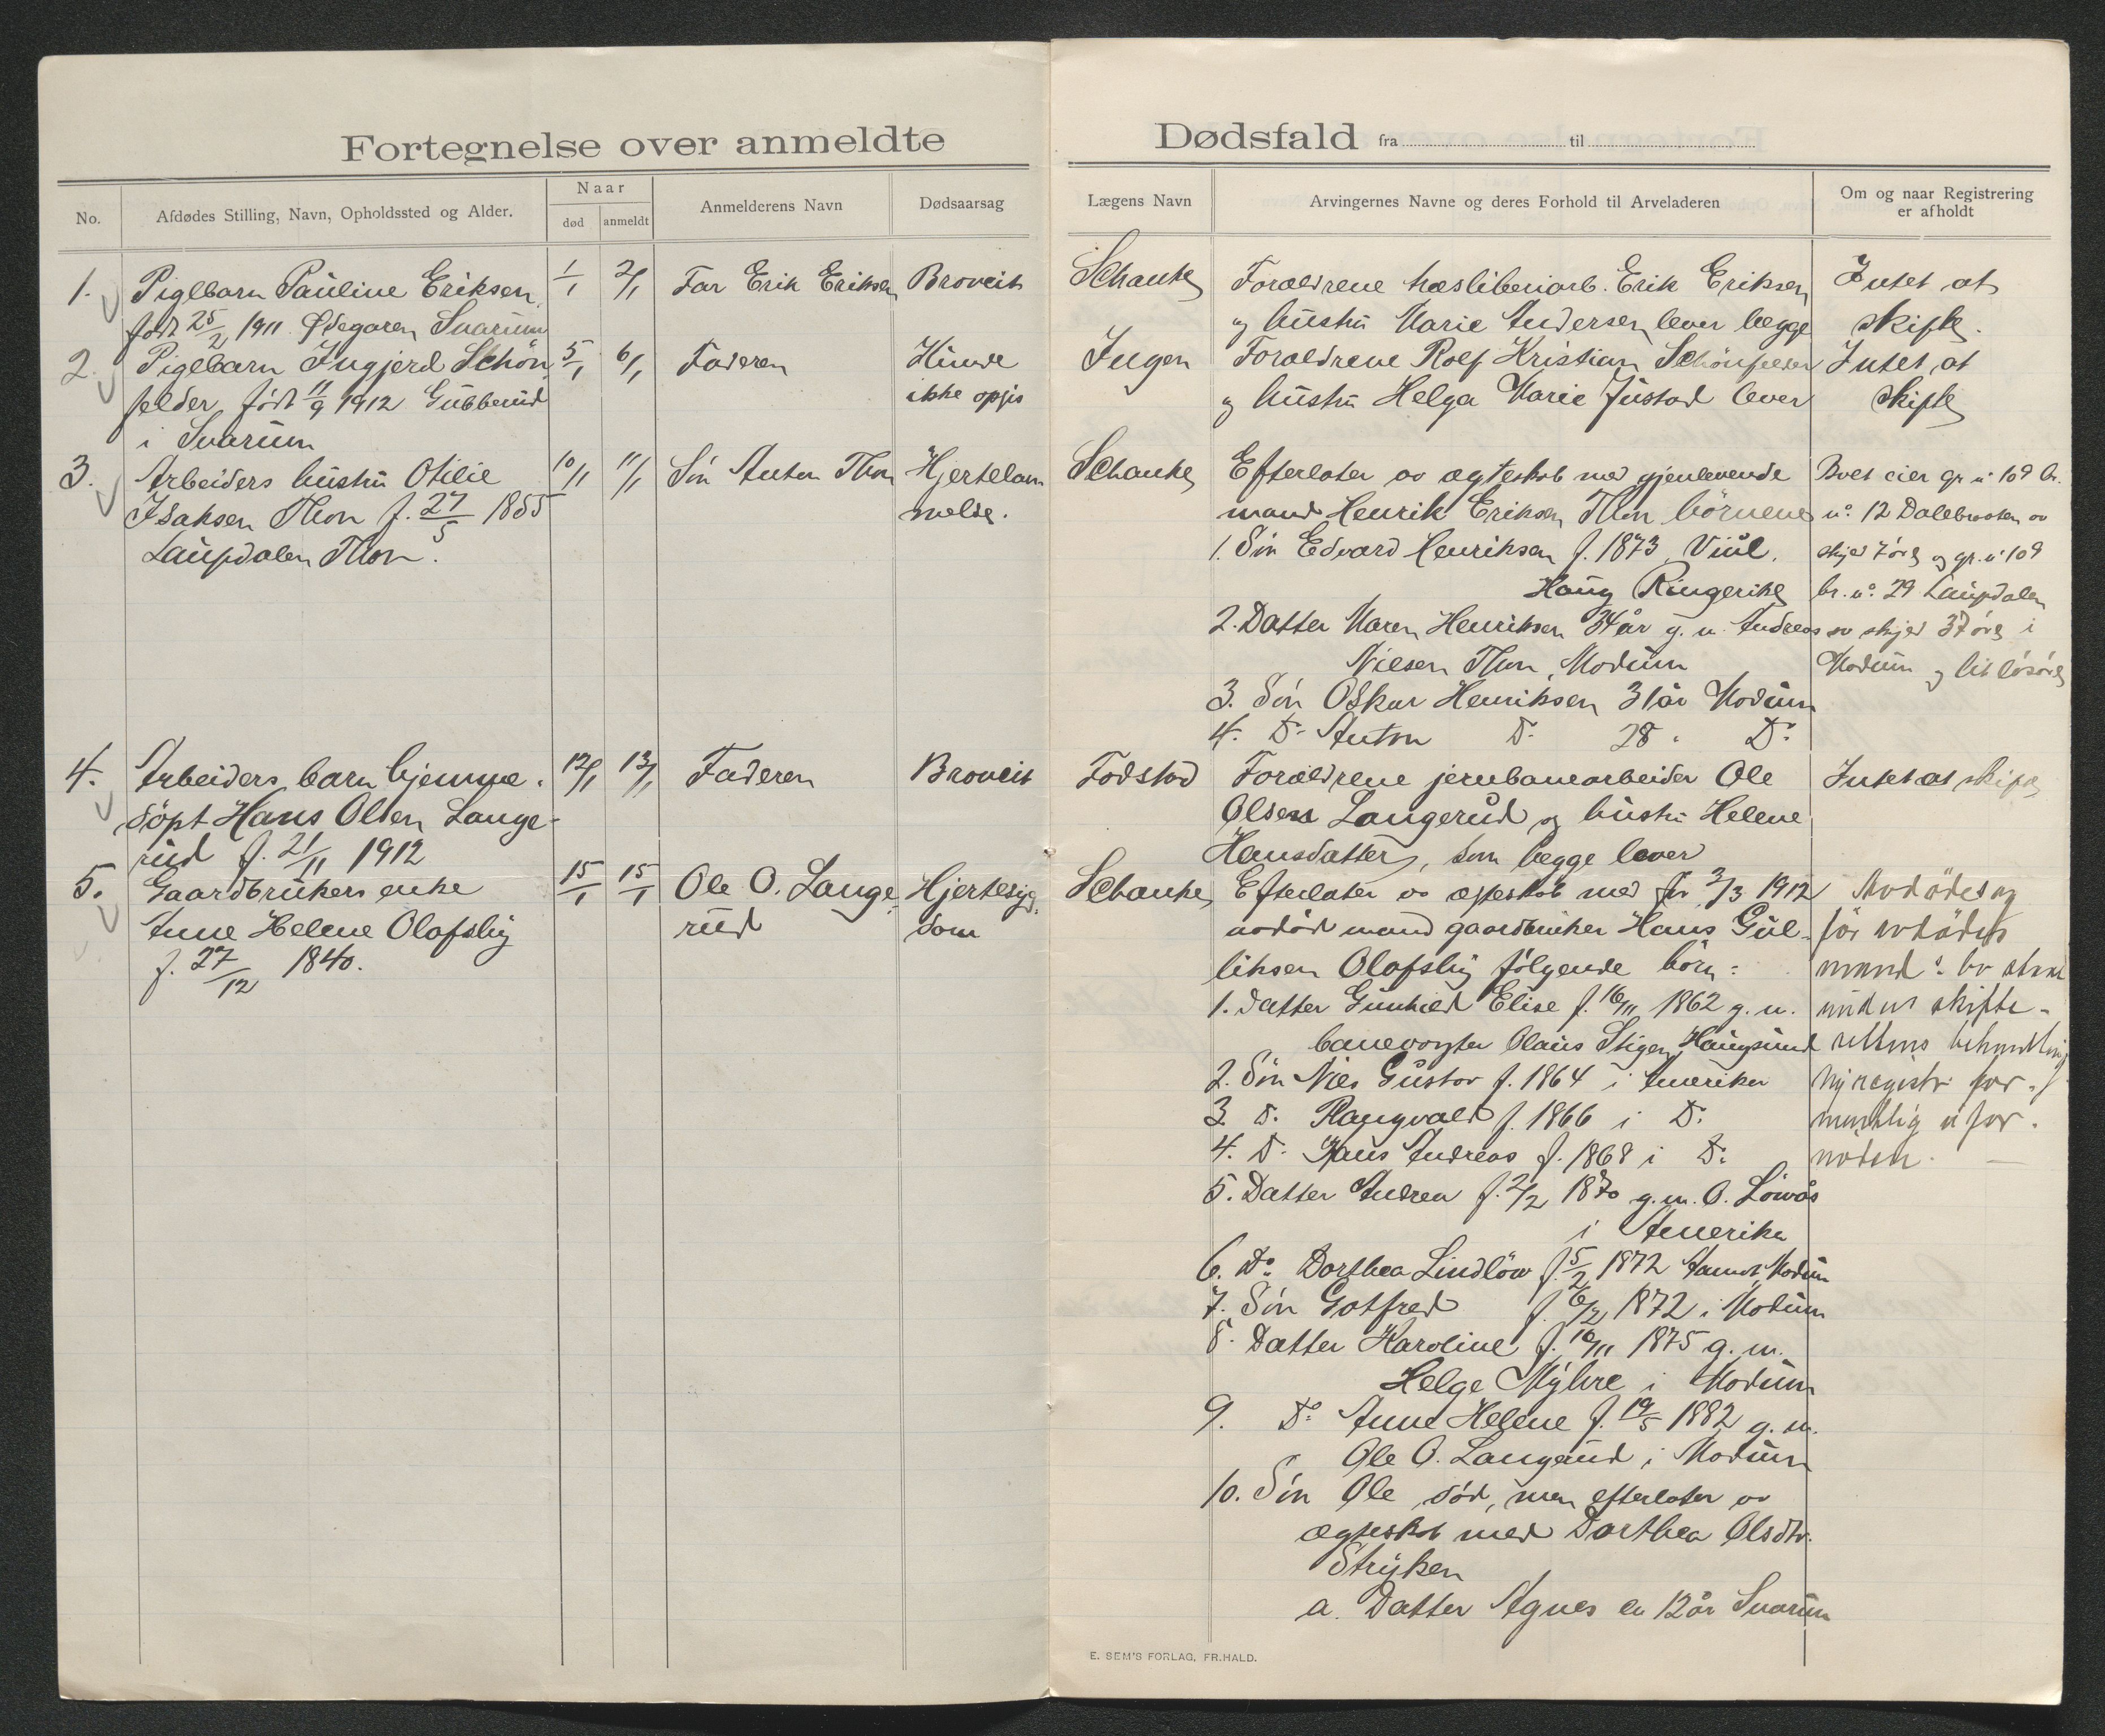 Fortegnelse over anmeldte
Dødsfald fra til
No.
Afdødes Stilling, Navn, Opholdssted og Alder.
Naar
død
anmeldt
Anmelderens Navn
Dødsaarsag
Lægens Navn
Arvingernes Navne og deres Forhold til Arveladeren
Om og naar Registrering
er afholdt
1.
Pigebarn Pauline Eriksen
født 25/2 1911 Ødegaren Snarum
1/1
2/1
Far Erik Eriksen
Broncit
Schanke
Forældrene træsliberiarb. Erik Eriksen
og hustru Marie Andersen lever begge
Intet at
skifte.
2.
Pigebarn Ingjerd Schön
felder, født 11/9 1912 Gubberud
i Snarum
5/1
6/1
Faderen
ikke opgis
Ingen
Forældrene Rolf Kristian Schönfelder
og hustru Helga Marie Justad lever
Intet at
skifte
3.
Arbeiders hustru Otilie
Isaksen Thon f. 27/5 1855
Laupdalen Thon.
10/1
11/1
Søn Anton Thon
Hjertelam
melse.
Schanke
Efterlater av ægteskab med gjenlevende
mand Henrik Eriksen Thon børnene
1. Søn Edvard Henriksen f. 1873, Viul,
Haug Ringerike
2. Datter Maren Henriksen 34 år g. m. Andreas
Nilsen Thon, Modum
3. Søn Oskar Henriksen 31 år Modum
4. Do Anton Do 28 " Do
Boet eier gr. no 109 br.
no 12 Dalebraaten av
skyld 7 øre og gr. no 109
br. no 29 Laupdalen
av skyld 37 øre i
Modum og lit løsøre
4.
Arbeiders barn hjemme-
døpt Hans Olsen Lange-
rud f. 21/11 1912
12/1
13/1
Faderen
Broncit
Fodstad
Forældrene jernbanearbeider Ole
Olsen Langerud og hustru Helene
Hansdatter, som begge lever
Intet at skifte
5.
Gaardbrukers enke
Anne Helene Olafsby
f. 27/12 1840.
15/1
15/1
Ole O. Lange-
rud
Hjertesyg-
dom
Schanke
Efterlater av ægteskab med før 3/3 1912
avdød mand gaardbruker Hans Gul-
liksen Olafsby følgende børn:
1. Datter Gunhild Elise f. 16/11 1862 g. m.
banevogter Olaus Stigen, Haugsund
2. Søn Nils Gustav f. 1864 i Amerika
3. Do Rangvald f. 1866 i Do
4. Do Hans Andreas f. 1868 i Do
5. Datter Andrea f. 2/2 1870 g. m. O. Løvås
i Amerika
6. Do Dorthea Lindløv f. 5/2 1872 Aamot, Modum
7. Søn Gotfred f. 6/2 1872 i Modum
8. Datter Karoline f. 16/11 1875 g. m.
Helge Myhre i Modum
9. Do Anne Helene f. 19/5 1882 g. m.
Ole O. Langerud i Modum
10. Søn Ole, død, men efterlater av
ægteskab med Dorthea Olsdtr.
Stryken
a. Datter Agnes ca 12 år Snarum
Avdødes og
før avdødes
mands bo staar
under skifte-
rettens behandling
Ny registr. for-
mentlig ufor-
nøden.
E. SEM'S FORLAG, FR.HALD.